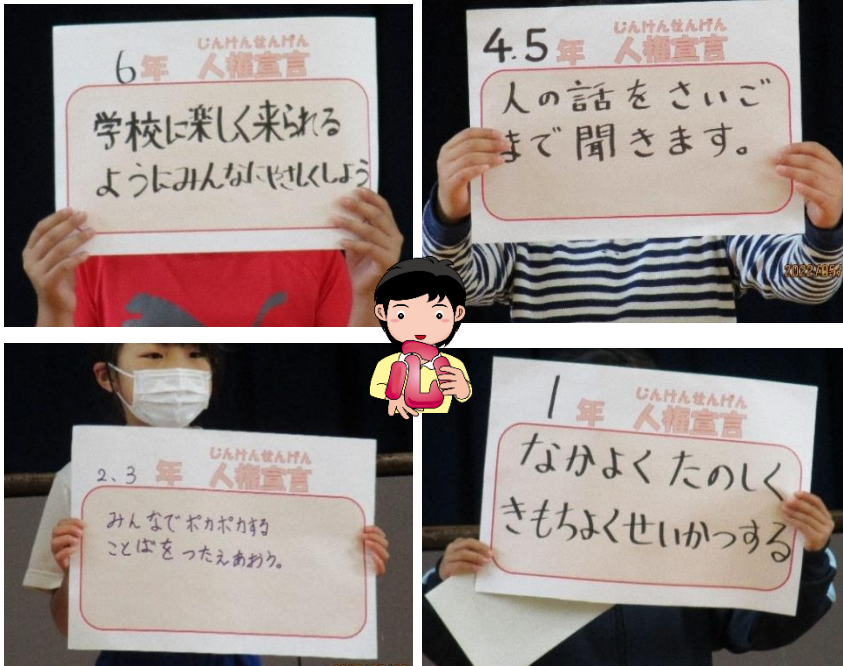 じんけんせんげん
6年 人権宣言
学校に楽しく来られる
ようにみんなにやさしくしよう
じんけんせんげん
4.5年 人権宣言
人の話をさいご
まで聞きます。
じんけんせんげん
2.3年 人権宣言
みんなでポカポカする
ことばをつたえあおう。
じんけんせんげん
1年 人権宣言
なかよくたのしく
きもちよくせいかつする
心